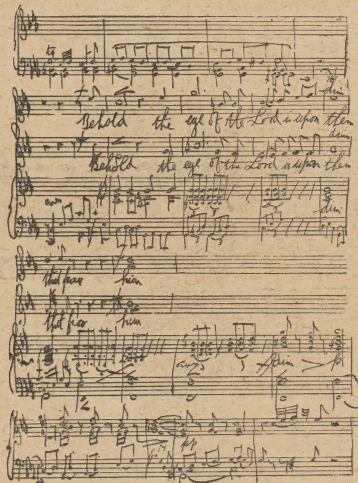 dim
Behold the eye of the Lord is upon them
dim
Behold the eye of the Lord is upon them
dim
that fear him
that fear him
dim
pp